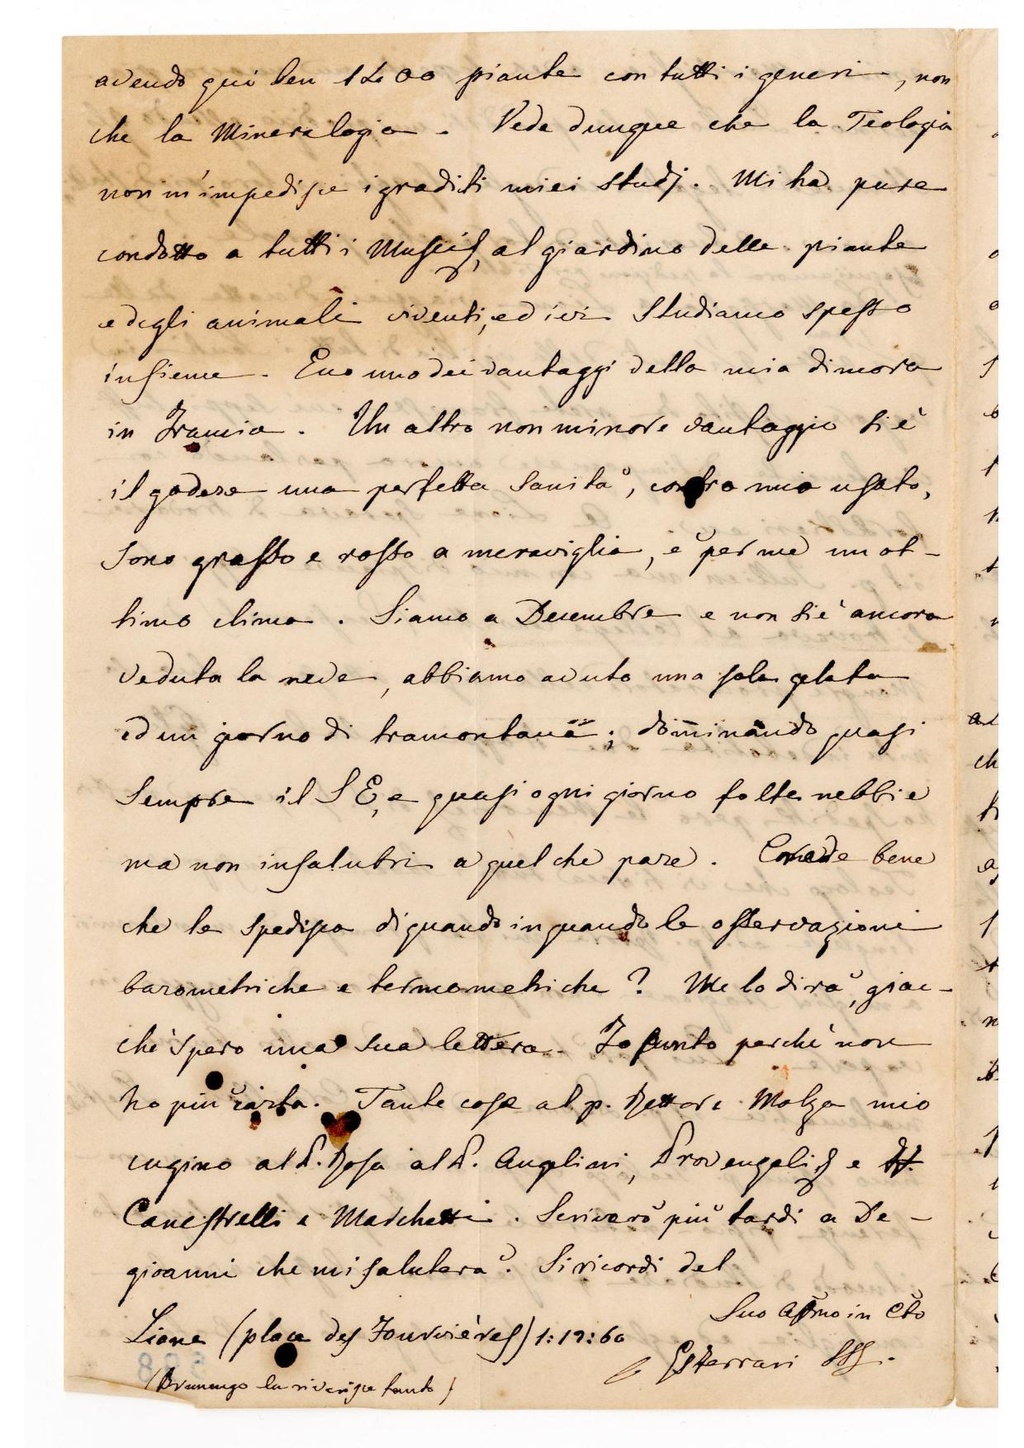 avendo qui ben 1200 piante con tutti i generi, non
che la Mineralogia. Vede dunque che la Teologia
non m'impedisce i graditi miei studj. Mi ha pure
condotto a tutti i Museij, al giardino delle piante
e degli animali viventi, ed ivi studiamo spesso
insieme. Eccone uno dei vantaggi della mia dimora
in Francia. Un altro non minore vantaggio si è
il godere una perfetta sanità, contro mio usato,
sono grasso e rosso a meraviglia, è per me un ot-
timo clima. Siamo a Decembre e non si è ancora
veduta la neve, abbiamo avuto una sola gelata
ed un giorno di tramontana; dominando quasi
sempre il SE, e quasi ogni giorno folte nebbie
ma non insalubri a quel che pare. Crede bene
che le spedisca di quando in quando le osservazioni
barometriche e termometriche? Me lo dirà, giac-
chè spero una sua lettera. Fo punto perchè non
ho più carta. Tante cose al p. Rettore Molza mio
cugino al P. Rosa al P. Angelini, Provenzalij e
Canestrelli e Marchetti. Scriverò più tardi a De-
gioanni che mi saluterà. Si ricordi del
Suo Affmo in Cto
Lione (place des Fourvières) 1:12:60
GSFerrari
(Brunengo la riverisce tanto)